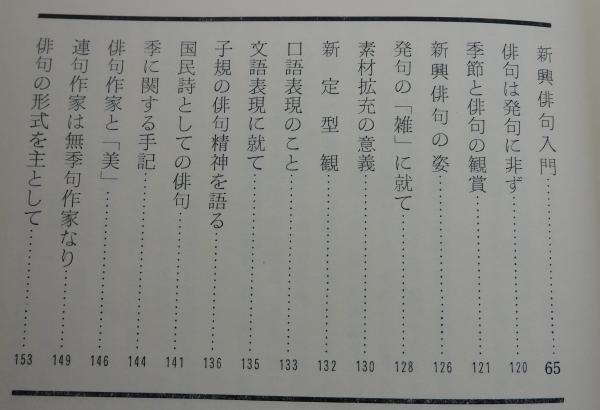 新興俳句入門……………65
俳句は発句に非ず……………120
季節と俳句の観賞……………121
新興俳句の姿……………126
発句の「雑」に就て……………128
素材拡充の意義……………130
新定型観……………132
口語表現のこと……………133
文語表現に就て……………135
子規の俳句精神を語る……………136
国民詩としての俳句……………141
季に関する手記……………144
俳句作家と「美」……………146
連句作家は無季句作家なり……………149
俳句の形式を主として……………153